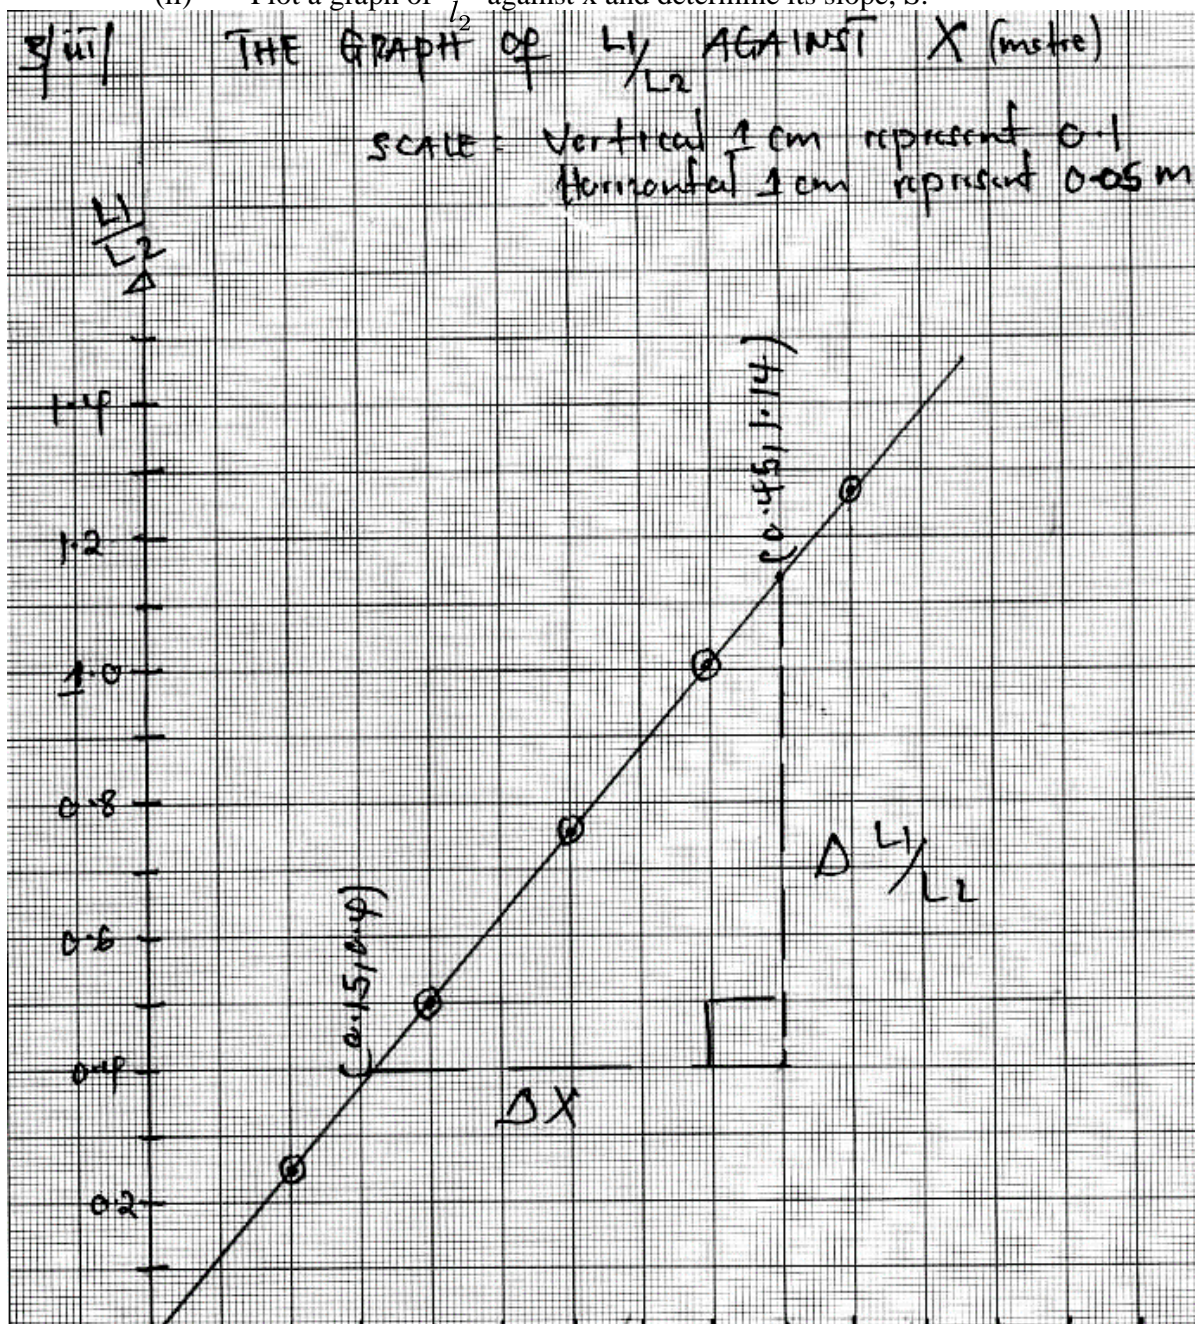 (ii) Plot a graph of l₂ against x and determine its slope, S.
THE GRAPH OF L1/L2 AGAINST X (metre)
SCALE: Vertical 1 cm represent 0.1
Horizontal 1 cm represent 0.05 m
L1
L2
1.4
(0.45, 1.14)
1.2
1.0
0.8
Δ L1/L2
(0.15, 0.4)
0.6
0.4
ΔX
0.2